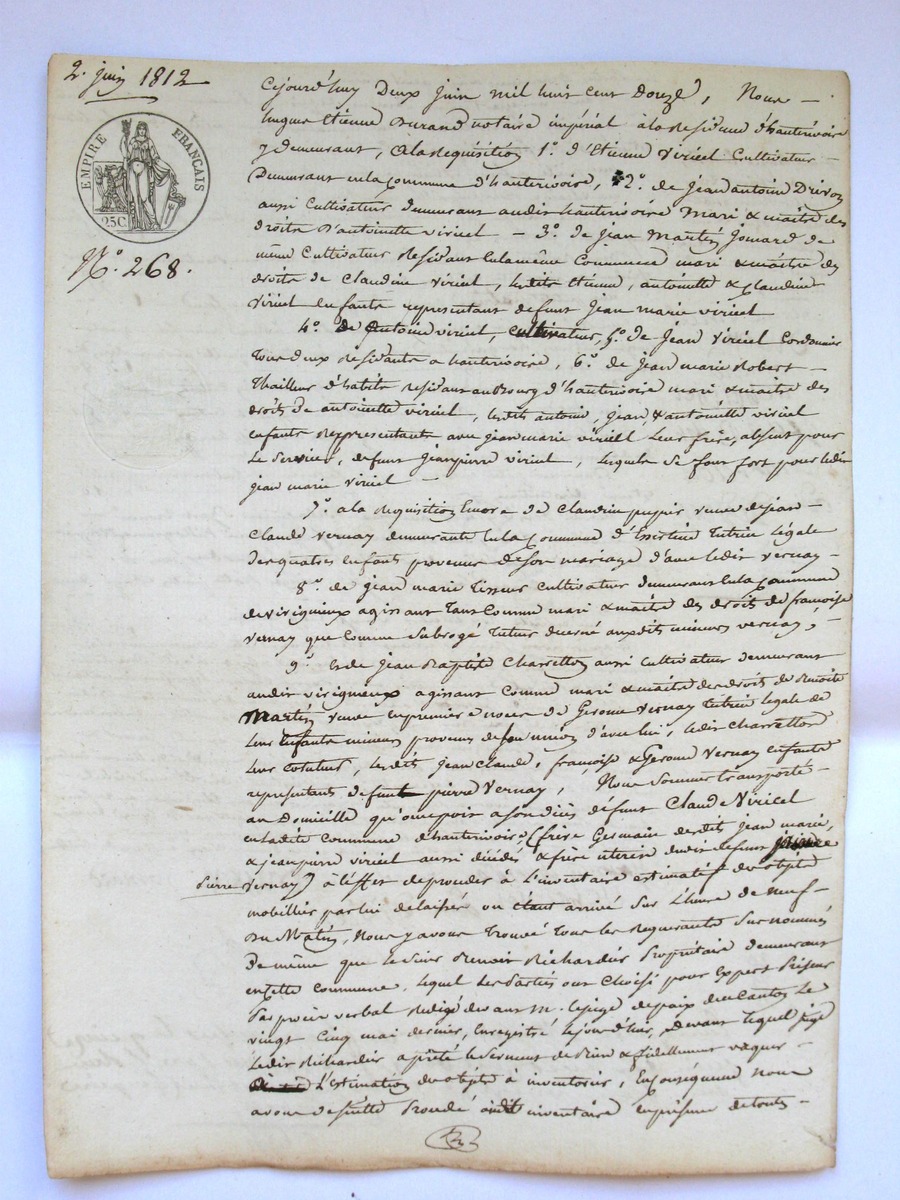 2. juin 1812
EMPIRE FRANÇAIS
25C
N.° 268.
Cejourd'huy Deux juin mil huit cent Douze, Nous
hugue Etienne Durand notaire impérial à la Residence d'hauterivoire
y demeurant, a la Requisition 1.° d'Etienne Viricel Cultivateur
Demeurant en la Commune d'hauterivoire, 2.° de Jean antoine Drivon
aussi Cultivateur demeurant audit hauterivoire Mari & maitre des
droits d'antoinette viricel - 3.° de Jean Martin Jomard de
même Cultivateur Residant en la même Commune mari & maitre des
droits de Claudine Viricel, lesdits Etienne, antoinette & Claudine
Viricel Enfants representant defunt Jean marie viricel
4.° de antoine viricel, Cultivateur, 5.° de Jean Viricel Cordonnier
tous deux Residants a hauterivoire, 6.° de Jean marie Robert
thailleur d'habits Residant au Bourg d'hauterivoire mari & maitre des
droits de antoinette viricel, lesdits antoine, Jean, & antoinette viricel
enfants Representants avec Jean marie viricel leur frère, absent pour
le Service, defunt Jeanpierre viricel, lesquels se font fort pour ledit
jean marie viricel
7.° a la Requisition Encore de Claudine pupier veuve de jean
Claude Vernay demeurante en la Commune d' tutrice légale
des quatres enfants provenus de son mariage d'avec ledit Vernay
8.° de jean marie Tisseur Cultivateur demeurant en la Commune
de virigneux agissant tant Comme mari & maitre des droits de françoise
Vernay que Comme Subrogé tuteur decerné auxdits mineurs vernay,
9.° & de Jean Baptiste Charretton aussi Cultivateur demeurant
audit virigneux agissant Comme mari & maitre des droits de Benoite
Martin veuve en premiere noces de Gerome Vernay tutrice légale de
leur Enfants mineurs provenus de son union d'avec lui, ledit Charretton
leur cotuteur, lesdits Jean Claude, françoise & Gerome Vernay enfants
representants defunt pierre Vernay, Nous Sommes transporté
au Domicille qu'occupoit a son décès défunt Claude Viricel
en ladite Commune d'hauterivoire, (frère Germain desdits Jean marie,
& jeanpierre viricel aussi décédés & frère uterin dudit defunt
Pierre Vernay) à l'effet de proceder à l'inventaire estimatif des objets
mobilliers par lui delaissés ou étant arrivé Sur l'heure de neuf
du Matin, Nous y avons trouvé tous les Requerants Sus nommés
De même que le Sieur Benoit Richardier Propriétaire demeurant
en Cette Commune, lequel les Parties ont choisi pour Expert Priseur
Par procès verbal Redigé devant M. le juge de paix du Canton le
vingt Cinq mai dernier, Enregistré le jour d'hier, devant lequel juge
Ledit Richardier a prêté le Serment de bien & fidellement vaquer
L'estimation des objets à inventorier, En Conséquence nous
avons de suitte Procédé audit inventaire en présence de touts